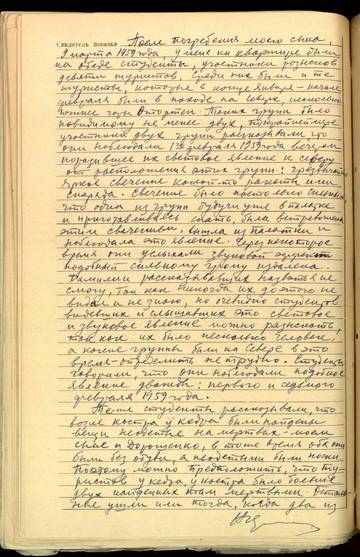 Свидетель показал После погребения моего сына,
9 марта 1959 года у меня на квартире были
на обеде студенты, участники розысков
девяти туристов. Среди них были и те
туристы, которые в конце января - начале
февраля были в походе на севере, несколько
южнее горы Отортен. Таких групп было
по-видимому не менее двух, по крайней мере
участники двух групп рассказывали что
они наблюдали 1го февраля 1959 года вечером
поразившее их световое явление к северу
от расположения этих групп: чрезвычайно
яркое свечение какой-то ракеты или
снаряда. Свечение было настолько сильным
что одна из групп будучи уже в палатке
и приготавливаясь спать, была встревожена
этим свечением. вышла из палатки и
наблюдала это явление. Через некоторое
время они услыхали звуковой эффект
подобный сильному грому издалека.
Фамилии рассказывавших назвать не
смогу, так как никогда их до этого не
видел и не знаю, но очевидно студентов
видевших и слышавших это световое
и звуковое явление можно разыскать
так как их было несколько человек,
а какие группы были на севере в это
время - определить не трудно. Студенты
говорили, что они наблюдали подобное
явление дважды: первого и седьмого
февраля 1959 года.
Те же студенты рассказывали, что
возле костра у кедра были найдены
вещи не одетые на мертвых - моем
сыне и Дорошенко, в то же время оба они
были без обуви, а не одетыми были носки.
Поэтому можно предположить, что ту-
ристов у кедра, у костра было больше
двух найденных там мертвыми. Осталь-
ные ушли или тогда, когда два из